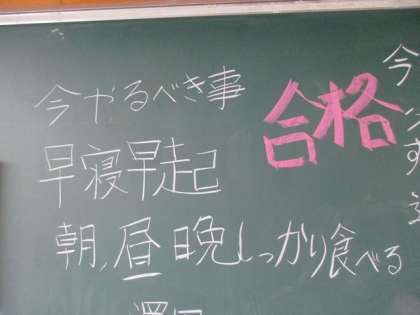 今やるべき事
合格
早寝早起
朝,昼晩しっかり食べる